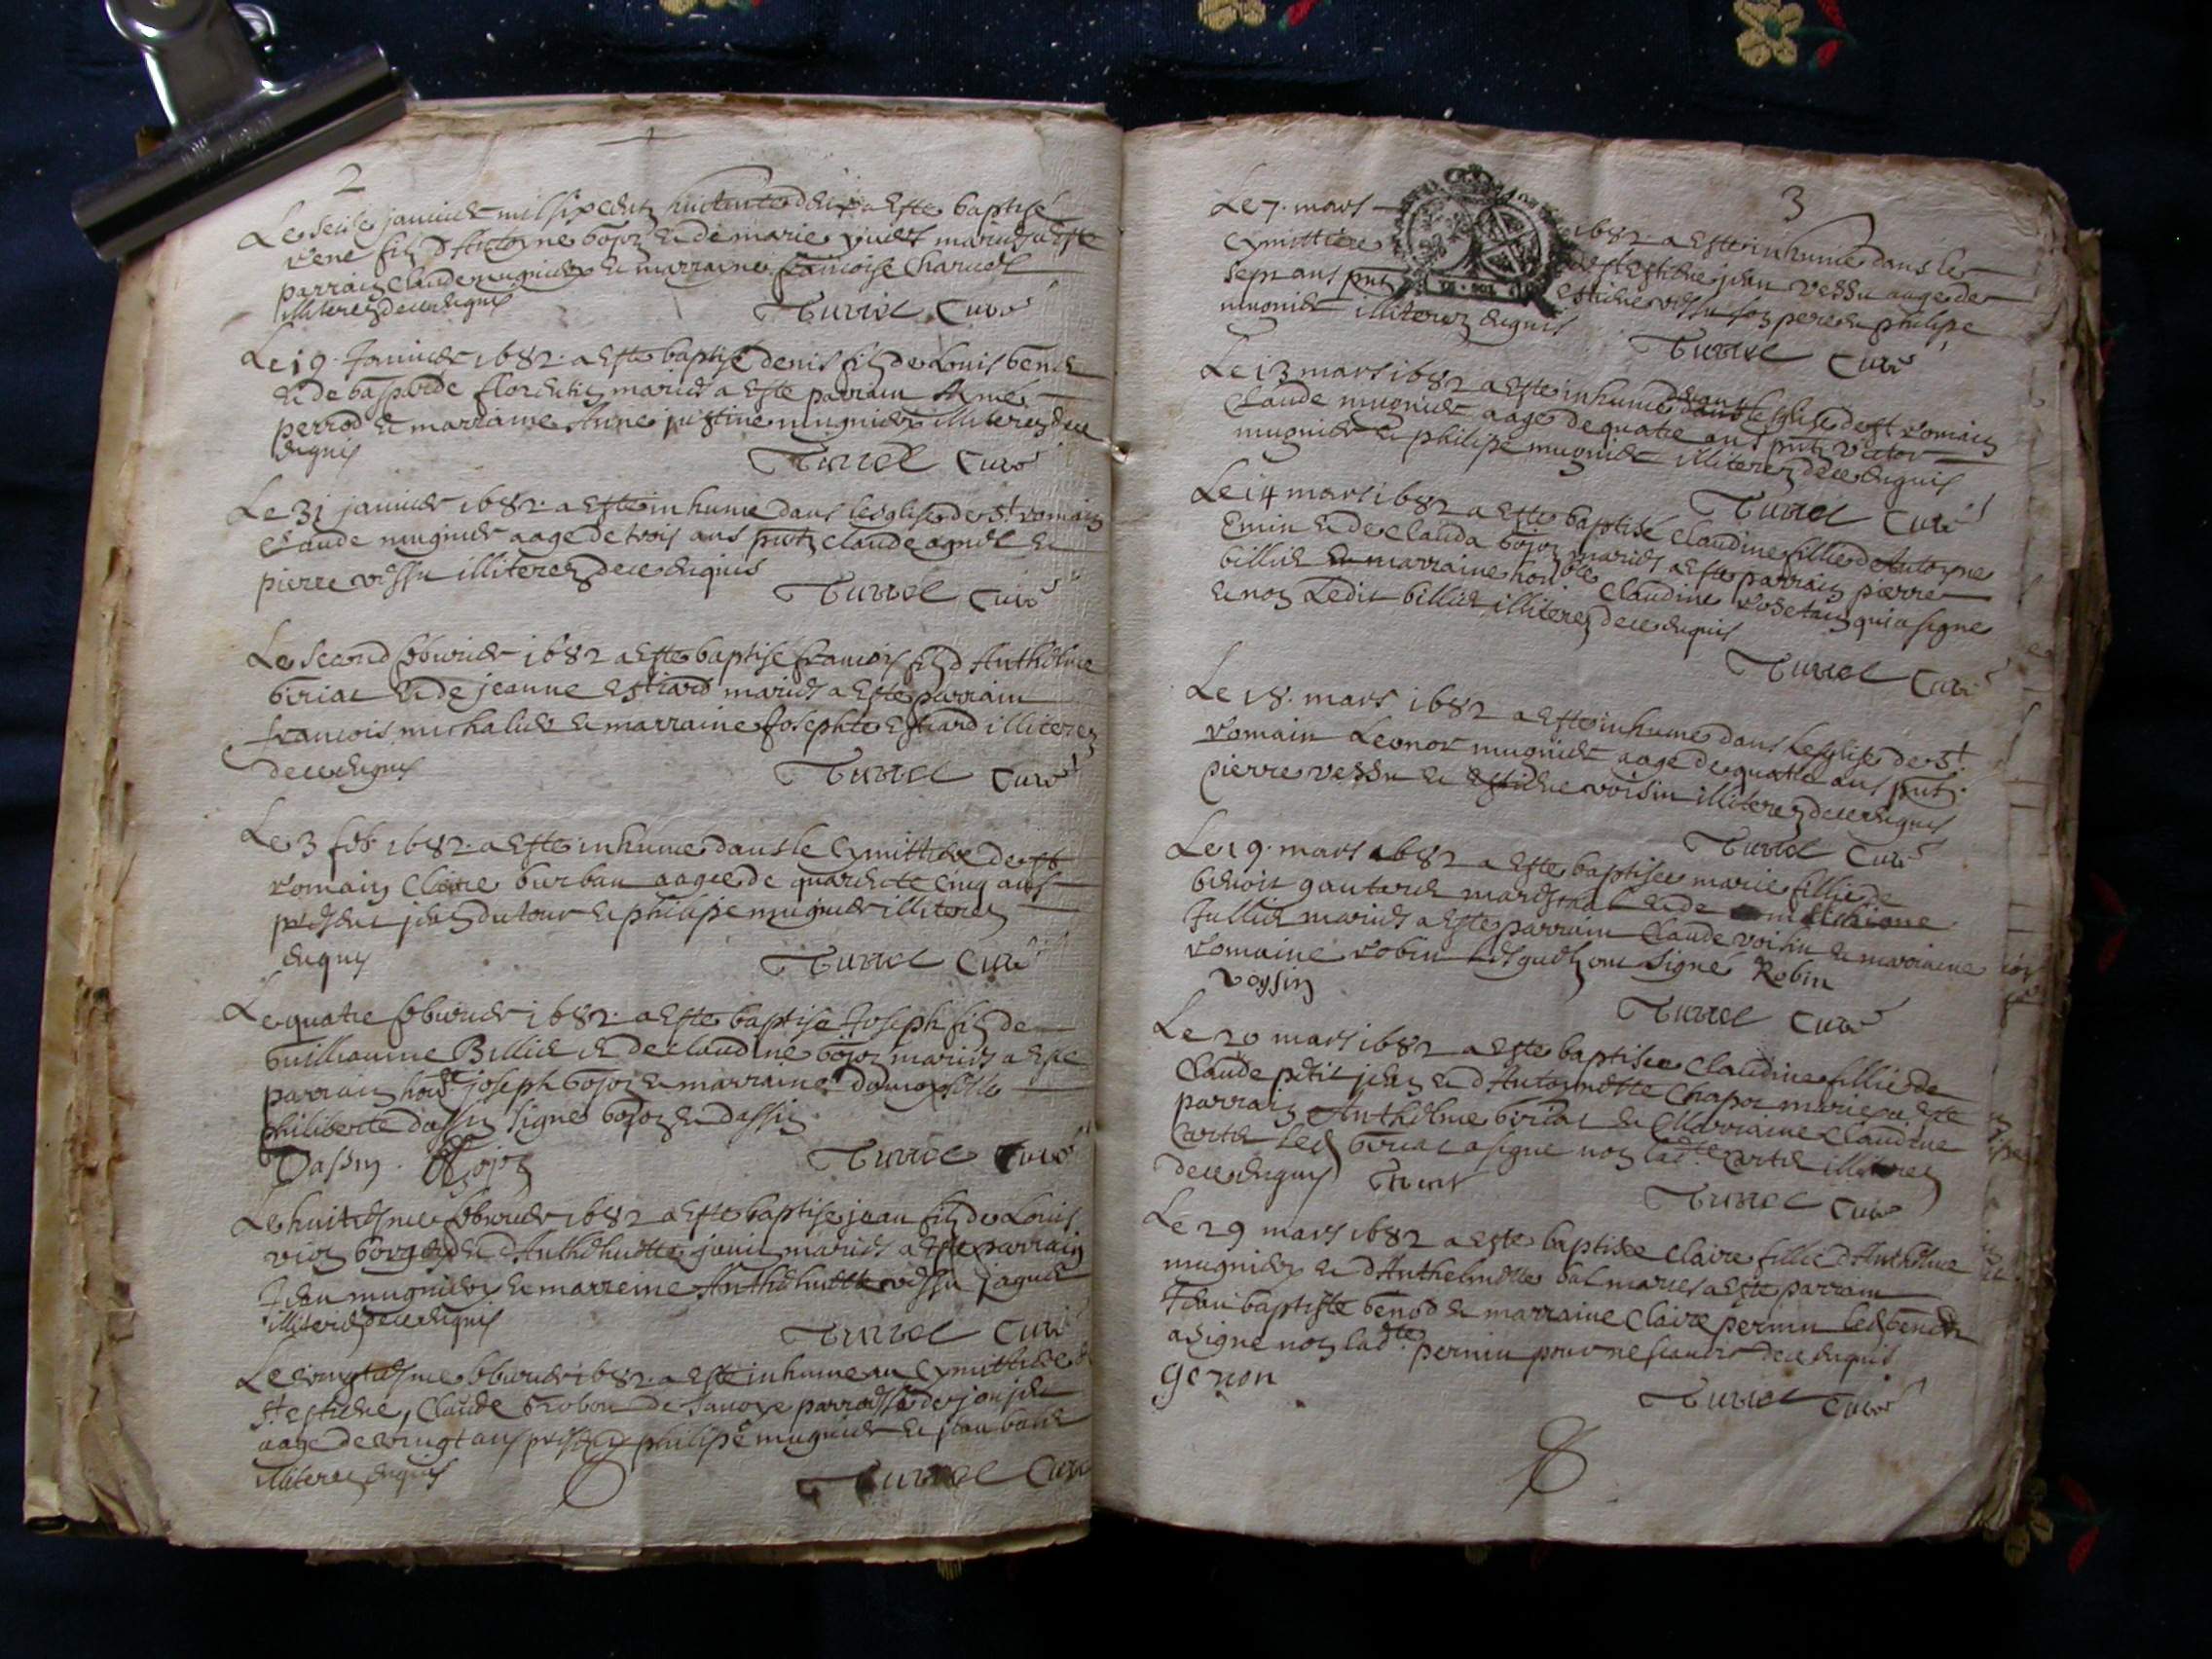 2
Le seise janvier mil six cent huictante deux a este baptisé
rené fils d'Antoyne bojon et de marie mariés a este
parrain Claude mugnier et marraine francoise Charvet
illiteres de ce enquis
Turrel Curé
Le 19 Janvier 1682 a este baptisé denis fils de Louis benod
et de gasparde florentin mariés a este parrain Ayme
perrod et marraine Anne justine mugnier illiteres de ce
enquis
Turrel Curé
Le 31 janvier 1682 a este inhumé dans lesglise de St romain
Claude mugnier aagé de trois ans pntz claude agniel et
pierre vessu illiteres de ce enquis
Turrel Curé
Le second febvrier 1682 a este baptise francois fils d'Anthelme
beriat et de jeanne Estiard mariés a este parrain
francois michalier et marraine Josephte Estiard illiteres
de ce enquis
Turrel Curé
Le 3 feb 1682 a este inhumé dans le Cymittiere de st
romain Claire burban aagee de quarente cinq ans
present jean dutour et philipe mugnier illiteres
enquis
Turrel Curé
Le quatre febvrier 1682 a este baptisé Joseph fils de
Guilliaume Billiet et de claudine bojon mariés a este
parrain hon. joseph bojon et marraine damoyselle
philiberte dassin signé bojon et dassin
Dassin Bojon
Turrel Curé
Le huitiesme febvrier 1682 a este baptisé jean fils de Louis
et d'Anthelmette mariés a este parrain
Jean mugnier et marreine Anthelmette vessu
illiteres de ce enquis
Turrel Curé
Le vingtiesme febvrier 1682 a este inhumé au Cymittiere de
St estiene, Claude de Savoye parroisse de
aagé de vingt ans philipe mugnier et jean
illiteres enquis
Turrel Curé
3
Le 7 mars 1682 a este inhumé dans le
Cymittiere de st Estiene jean vessu aagé de
sept ans pntz Estiene vessu son pere et philipe
mugnier illiteres enquis
Turrel Curé
Le 13 mars 1682 a este inhumé dans lesglise de st romain
Claude mugnier aagé de quatre ans pntz victor
mugnier et philipe mugnier illiteres de ce enquis
Turrel Curé
Le 14 mars 1682 a este baptisé Claudine fillie de Antoyne
Emin et de Clauda bojon mariés a este parrain pierre
billiet et marraine hon.ble Claudine rosetain qui a signé
et non Ledit billiet illiteres de ce enquis
Turrel Curé
Le 18 mars 1682 a este inhumé dans Lesglise de St
romain Leonor mugnier aagé de quatre ans pntz
pierre vessu et estiene voisin illiteres de ce enquis
Turrel Curé
Le 19 mars 1682 a este baptisee marie fillie de
benoit gautard et de
Jullier mariés a este parrain Claude voisin et marraine
romaine robin lesquels ont signé Robin
voysin
Turrel Curé
Le 20 mars 1682 a este baptisee Claudine fillie de
Claude petit jean et d'Antoynette Chapot mariés a este
parrain Anthelme beriat et Marraine Claudine
Cartet Led beriat a signé non lad.te Cartet illiteres
de ce enquis
Turrel Curé
Le 29 mars 1682 a este baptisee Claire fillie d'Anthelme
mugnier et d'Anthelmette bal mariés a este parrain
Jean baptiste benod et marraine Claire pernin led benod
a signé non lad.te pernin pour ne scavoir de ce enquis
Turrel Curé